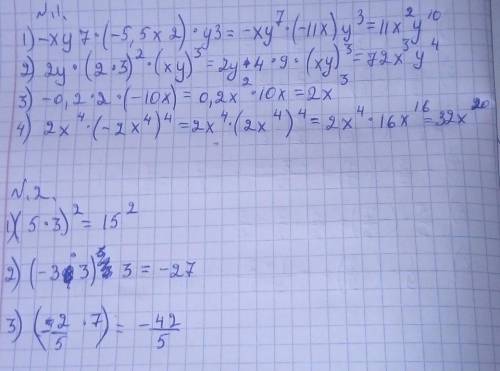 N.1.
1) -xy7·(-5,5x2)·y3=-xy⁷·(-11x)y³=11x²y¹⁰
2) 2y·(2·3)²·(xy)³=2y·4·9·(xy)³=72x³y⁴
3) -0,2·2·(-10x)=0,2x²·10x=2x³
4) 2x⁴·(-2x⁴)⁴=2x⁴·(2x⁴)⁴=2x⁴·16x¹⁶=32x²⁰
N.2.
1)(5·3)²=15²
2) 3=-27
3) ·7)=-42/5